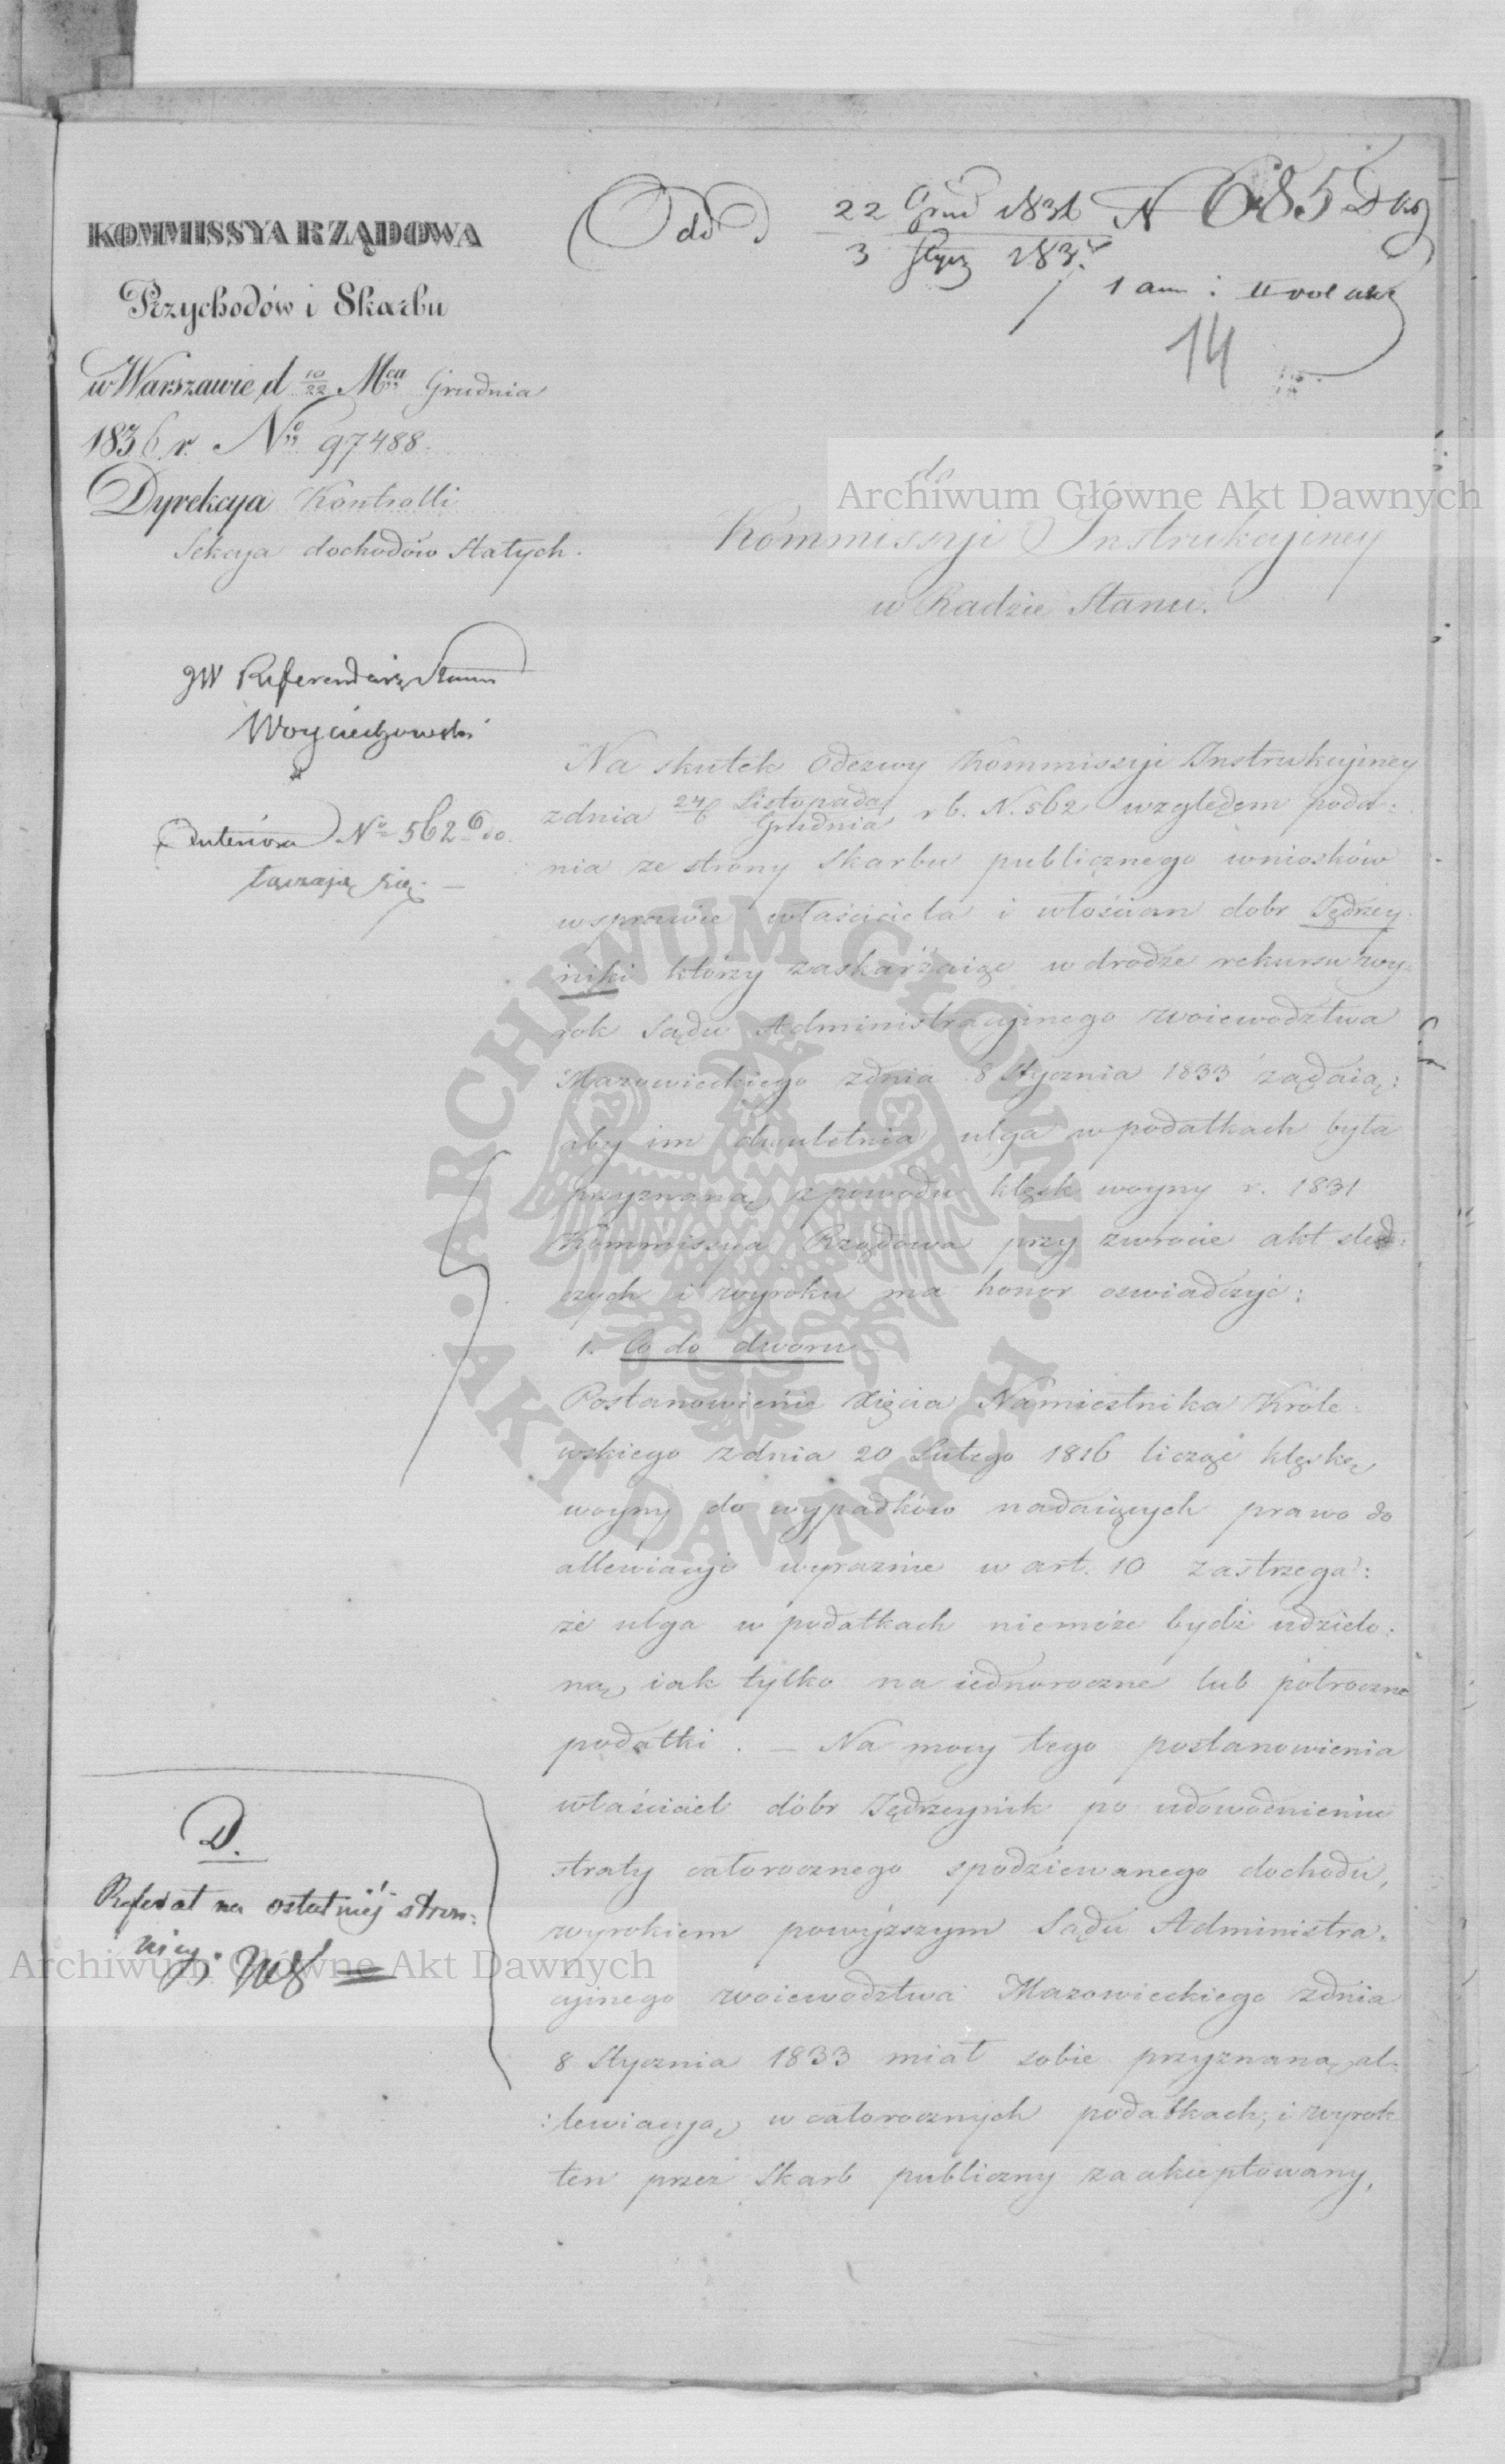 KOMMISSYA RZĄDOWA
Przychodów i Skarbu
w Warszawie d 10/22 Mca Grudnia
1836 r. No 97488.
Dyrekcya Kontrolli
Sekcya dochodów Stałych.
Odd 22 Grud 183 N 685
3 Stycz 183
14
do
Kommissyi Instrukcyiney
w Radzie Stanu.
JW Referendarz Stanu
Woyciechowski
Anteriora No 562
łączają się. —
Na skutek Odezwy Kommissyi Instrukcyiney
z dnia 24 Listopada / 6 Grudnia r b. N. 562 względem poda-
nia ze strony Skarbu publicznego wniosków
w sprawie właściciela i włościan dobr Jędrzey-
niki którzy zaskarżaiąc w drodze rekursu wy-
rok Sądu Administracyinego Woiewodztwa
Mazowieckiego z dnia 8 Stycznia 1833 żądaią:
aby im dwuletnia ulga w podatkach była
przyznaną z powodu klęsk woyny r. 1831
Kommissya Rządowa przy zwrocie akt sled-
czych i wyroku ma honor oswiadczyć:
1. Co do dworu
Postanowienie Xięcia Namiestnika Króle-
wskiego z dnia 20 Lutego 1816 licząc klęskę
woyny do wypadków nadaiących prawo do
allewiacyi wyraznie w art. 10 zastrzega:
że ulga w podatkach niemoże bydź udzielo-
ną, iak tylko na iednoroczne lub półroczne
podatki. — Na mocy tego postanowienia
właściciel dóbr Jędrzeynik po udowodnieniu
straty całorocznego spodziewanego dochodu,
wyrokiem powyższym Sądu Administra-
cyinego Woiewodztwa Mazowieckiego z dnia
8 Stycznia 1833 miał sobie przyznaną al-
:lewiacyą w całorocznych podatkach; i wyrok
ten przez Skarb publiczny zaakceptowany,
D.
Referat na ostatniéj stron-
nicy.
Archiwum Główne Akt Dawnych
Archiwum Główne Akt Dawnych
ARCHIWUM GŁÓWNE · AKT DAWNYCH ·